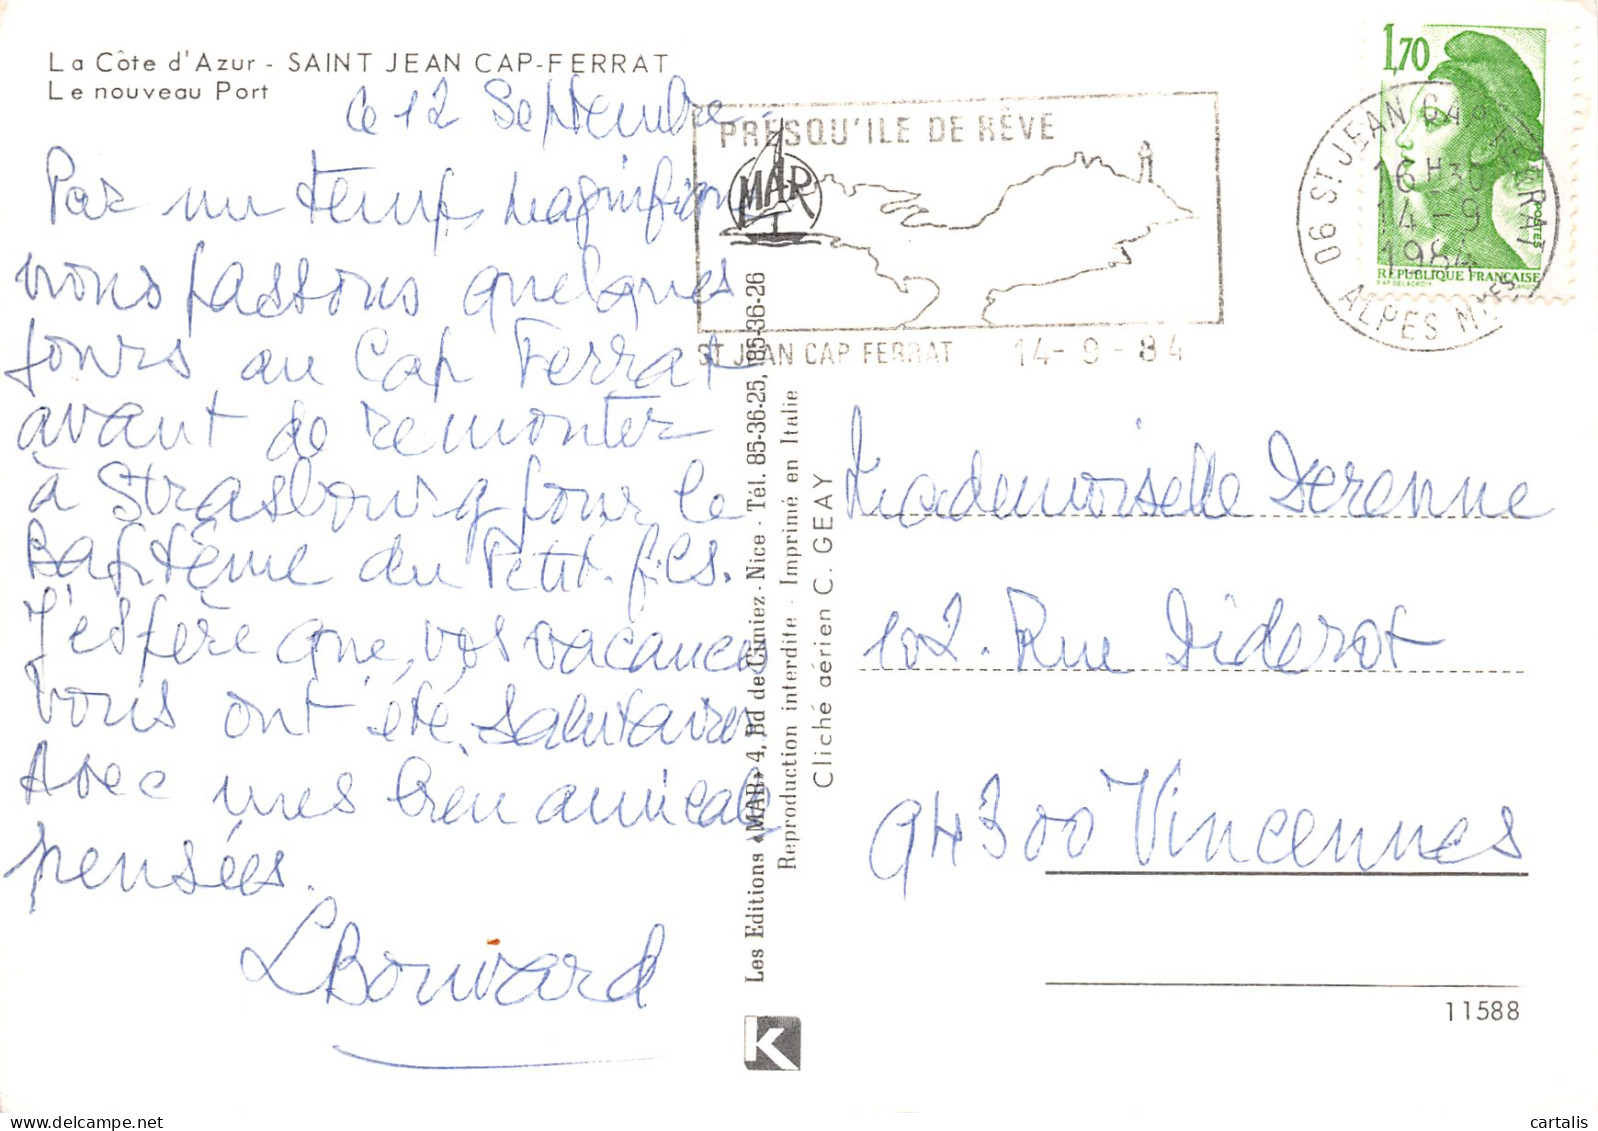 La Côte d'Azur - SAINT JEAN CAP-FERRAT
Le nouveau Port
le 12 Septembre
Par un temps magnifique
nous passons quelques
jours au Cap Ferrat
avant de remonter
à Strasbourg pour le
Baptême du Petit-fils.
J'espère que vos vacances
vous ont été salutaires
Avec mes bien amicales
pensées.
LBouvard
PRESQU'ILE DE RÊVE
MAR
ST JEAN CAP FERRAT 14-9-84
1,70
POSTES
REPUBLIQUE FRANÇAISE
06 ST. JEAN CAP FERRAT
16 H30
14-9
1984
ALPES MMES
Les Editions «MAR» 4, Bd de Cimiez - Nice - Tél. 85-36-25, 85-36-26
Reproduction interdite - Imprimé en Italie
Cliché aérien C. GEAY
Mademoiselle Derenne
102. Rue Diderot
94300 Vincennes
11588
K
cartalis